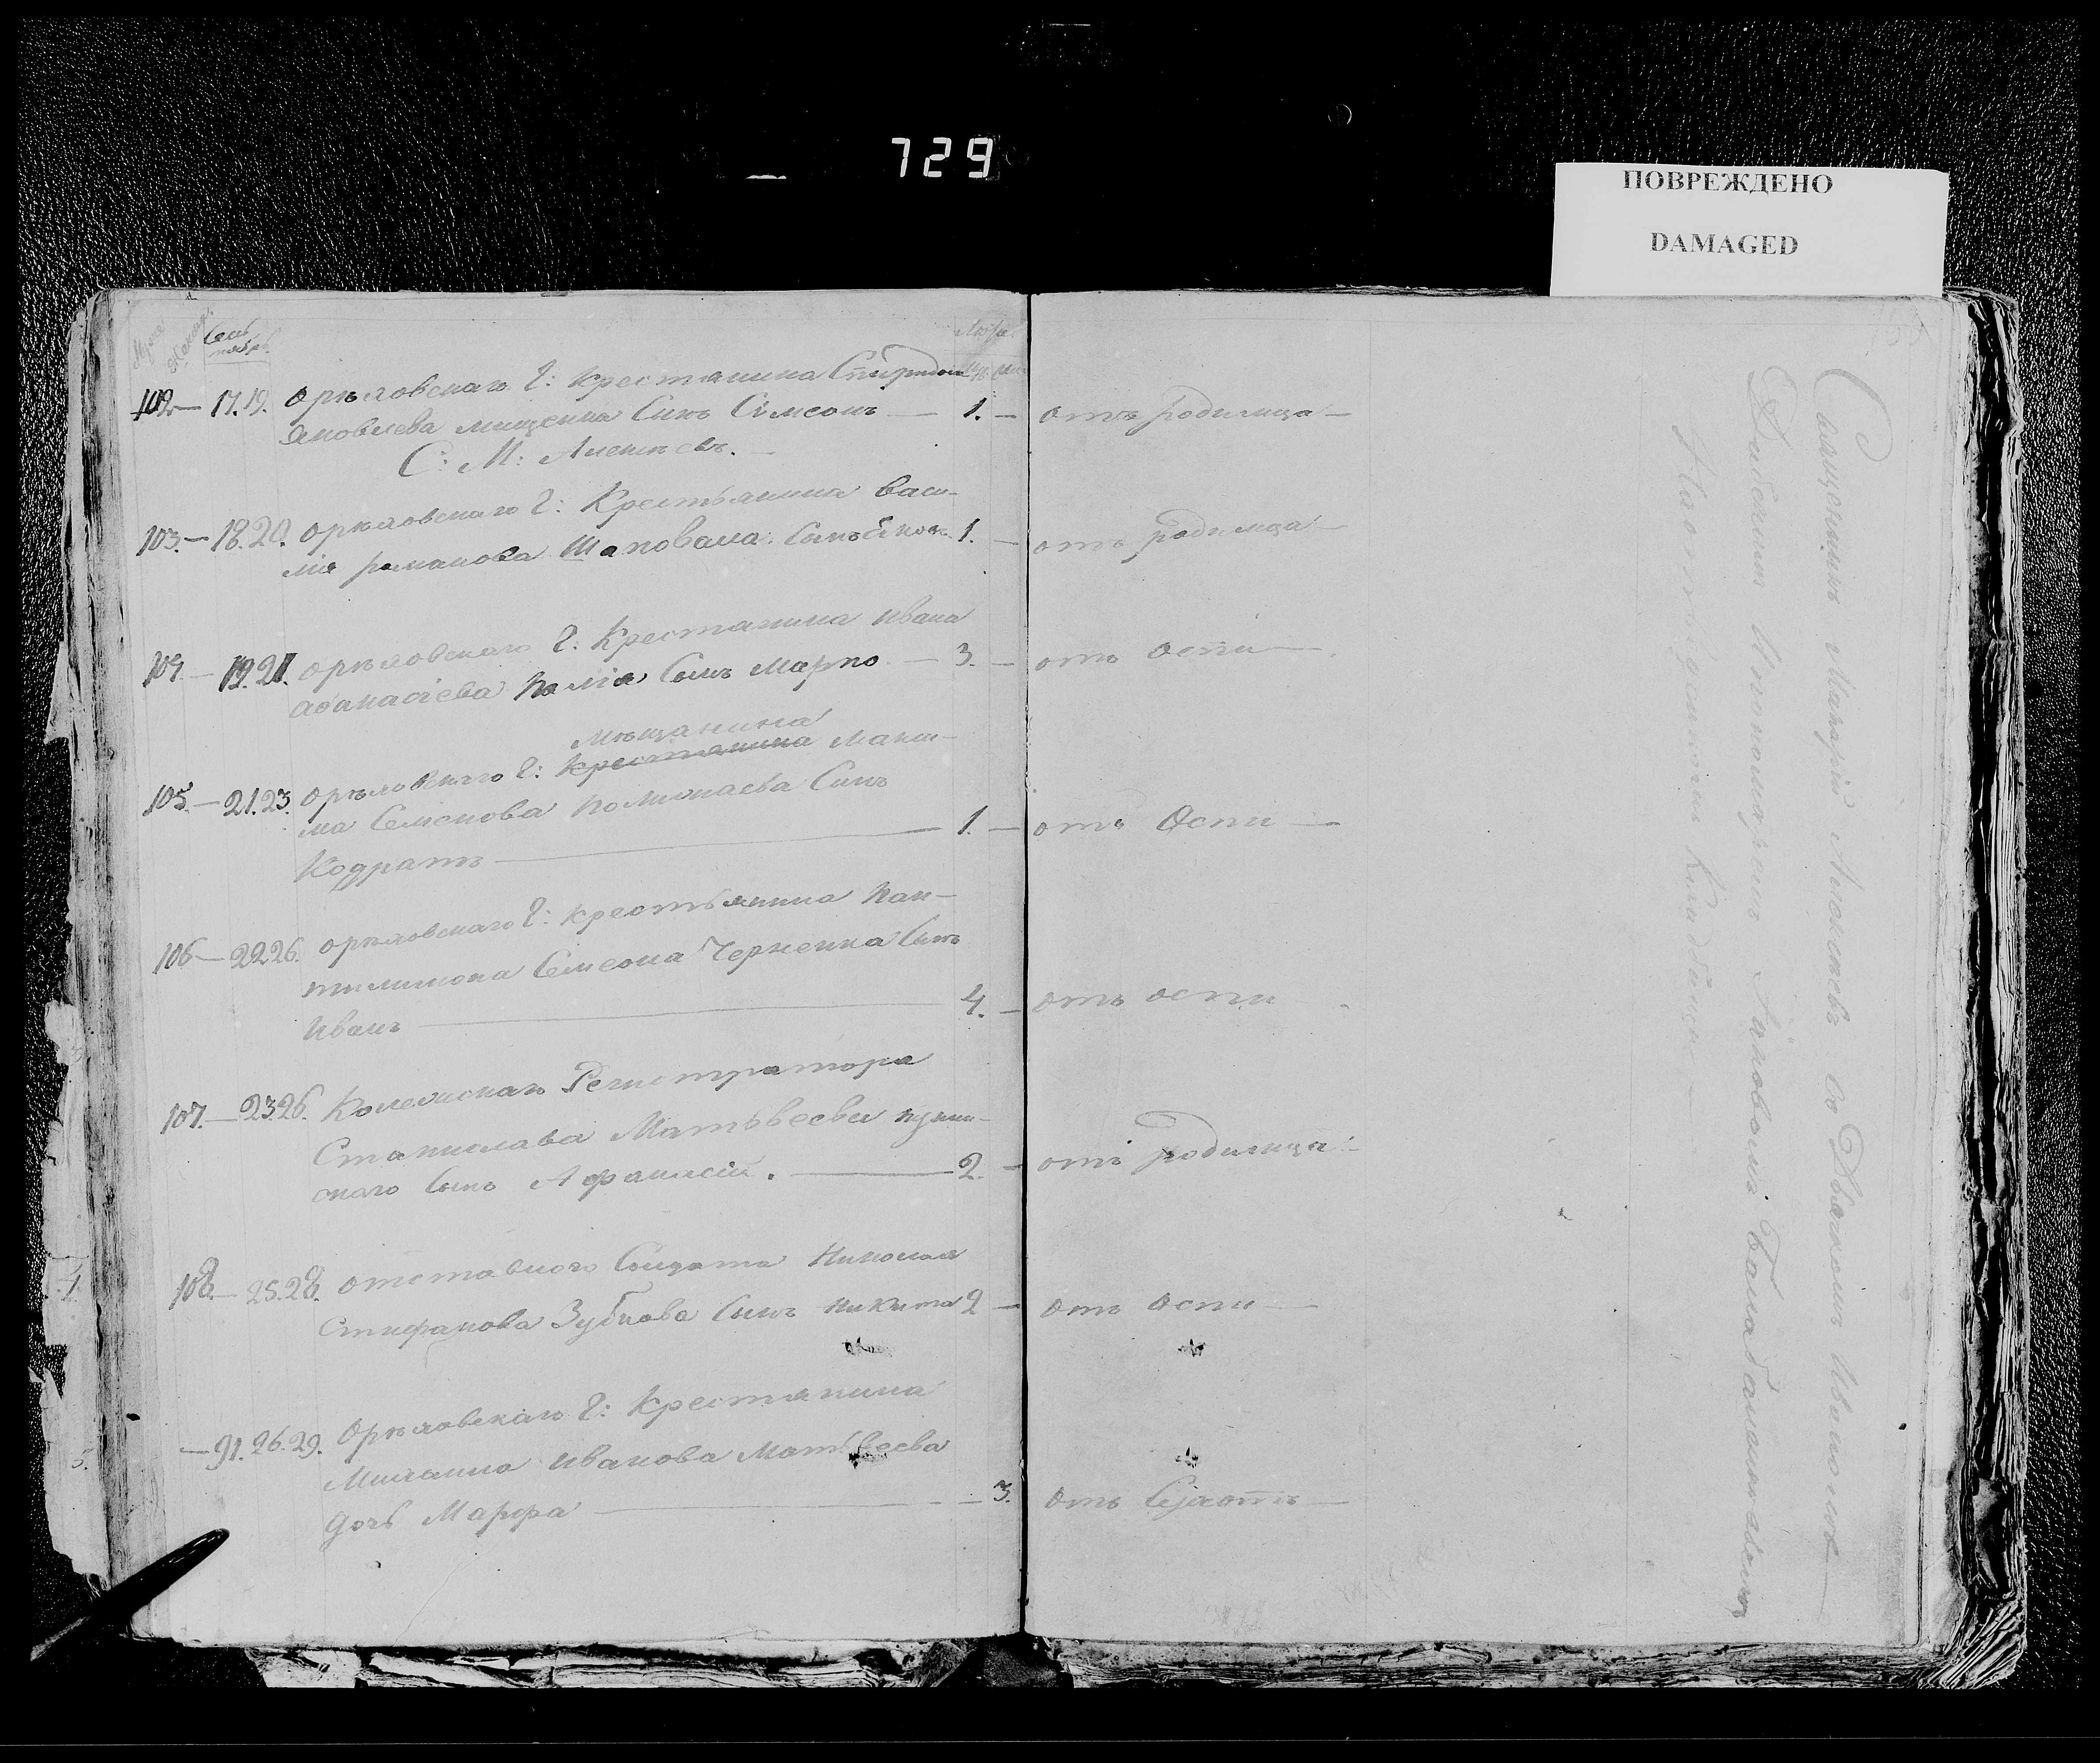 729
ПОВРЕЖДЕНО
DAMAGED
Сентябрь
Лѣта
102. — 17. 19. орѣловскаго г: крестянина Спиридона
Яковлева мищенка Синъ Симеонъ — 1. — отъ родимца —
С: М: Алексѣевъ. —
103. — 18. 20. орѣловскаго г: Крестьянина васи-
лія романова Шаповала Сынъ 1. — отъ родимца —
104 — 19. 21. орѣловскаго г: Крестянина ивана
афанасіева Сынъ марко — 3. — отъ оспи —
мѣщанина
105. — 21. 23. орѣловскаго г: крестянина макси-
ма Семенова Синъ
Кодратъ — 1. — отъ Оспи —
106 — 22 26. орѣловскаго г: крестьянина пан-
тилимона Семеона Черненка Сынъ
иванъ — 4. — отъ оспи
107. — 23 26. Колежскаго Регистратора
Станислава Матьвеева
скаго Сынъ Афанасій. — 2. — отъ родимца —
108. — 25. 28. отставного Солдата Николая
Стифанова Зубкова Сынъ никита 2 — отъ оспи —
— 91. 26. 29. Орѣловскаго г: Крестянина
иванова Матьвеева
дочь Марфа — 3. отъ Сухотъ —
Священникъ Макарій Алексѣевъ со Дьякономъ Иваномъ
Дьячкомъ Пономаремъ
На приходскомъ Кладбище —